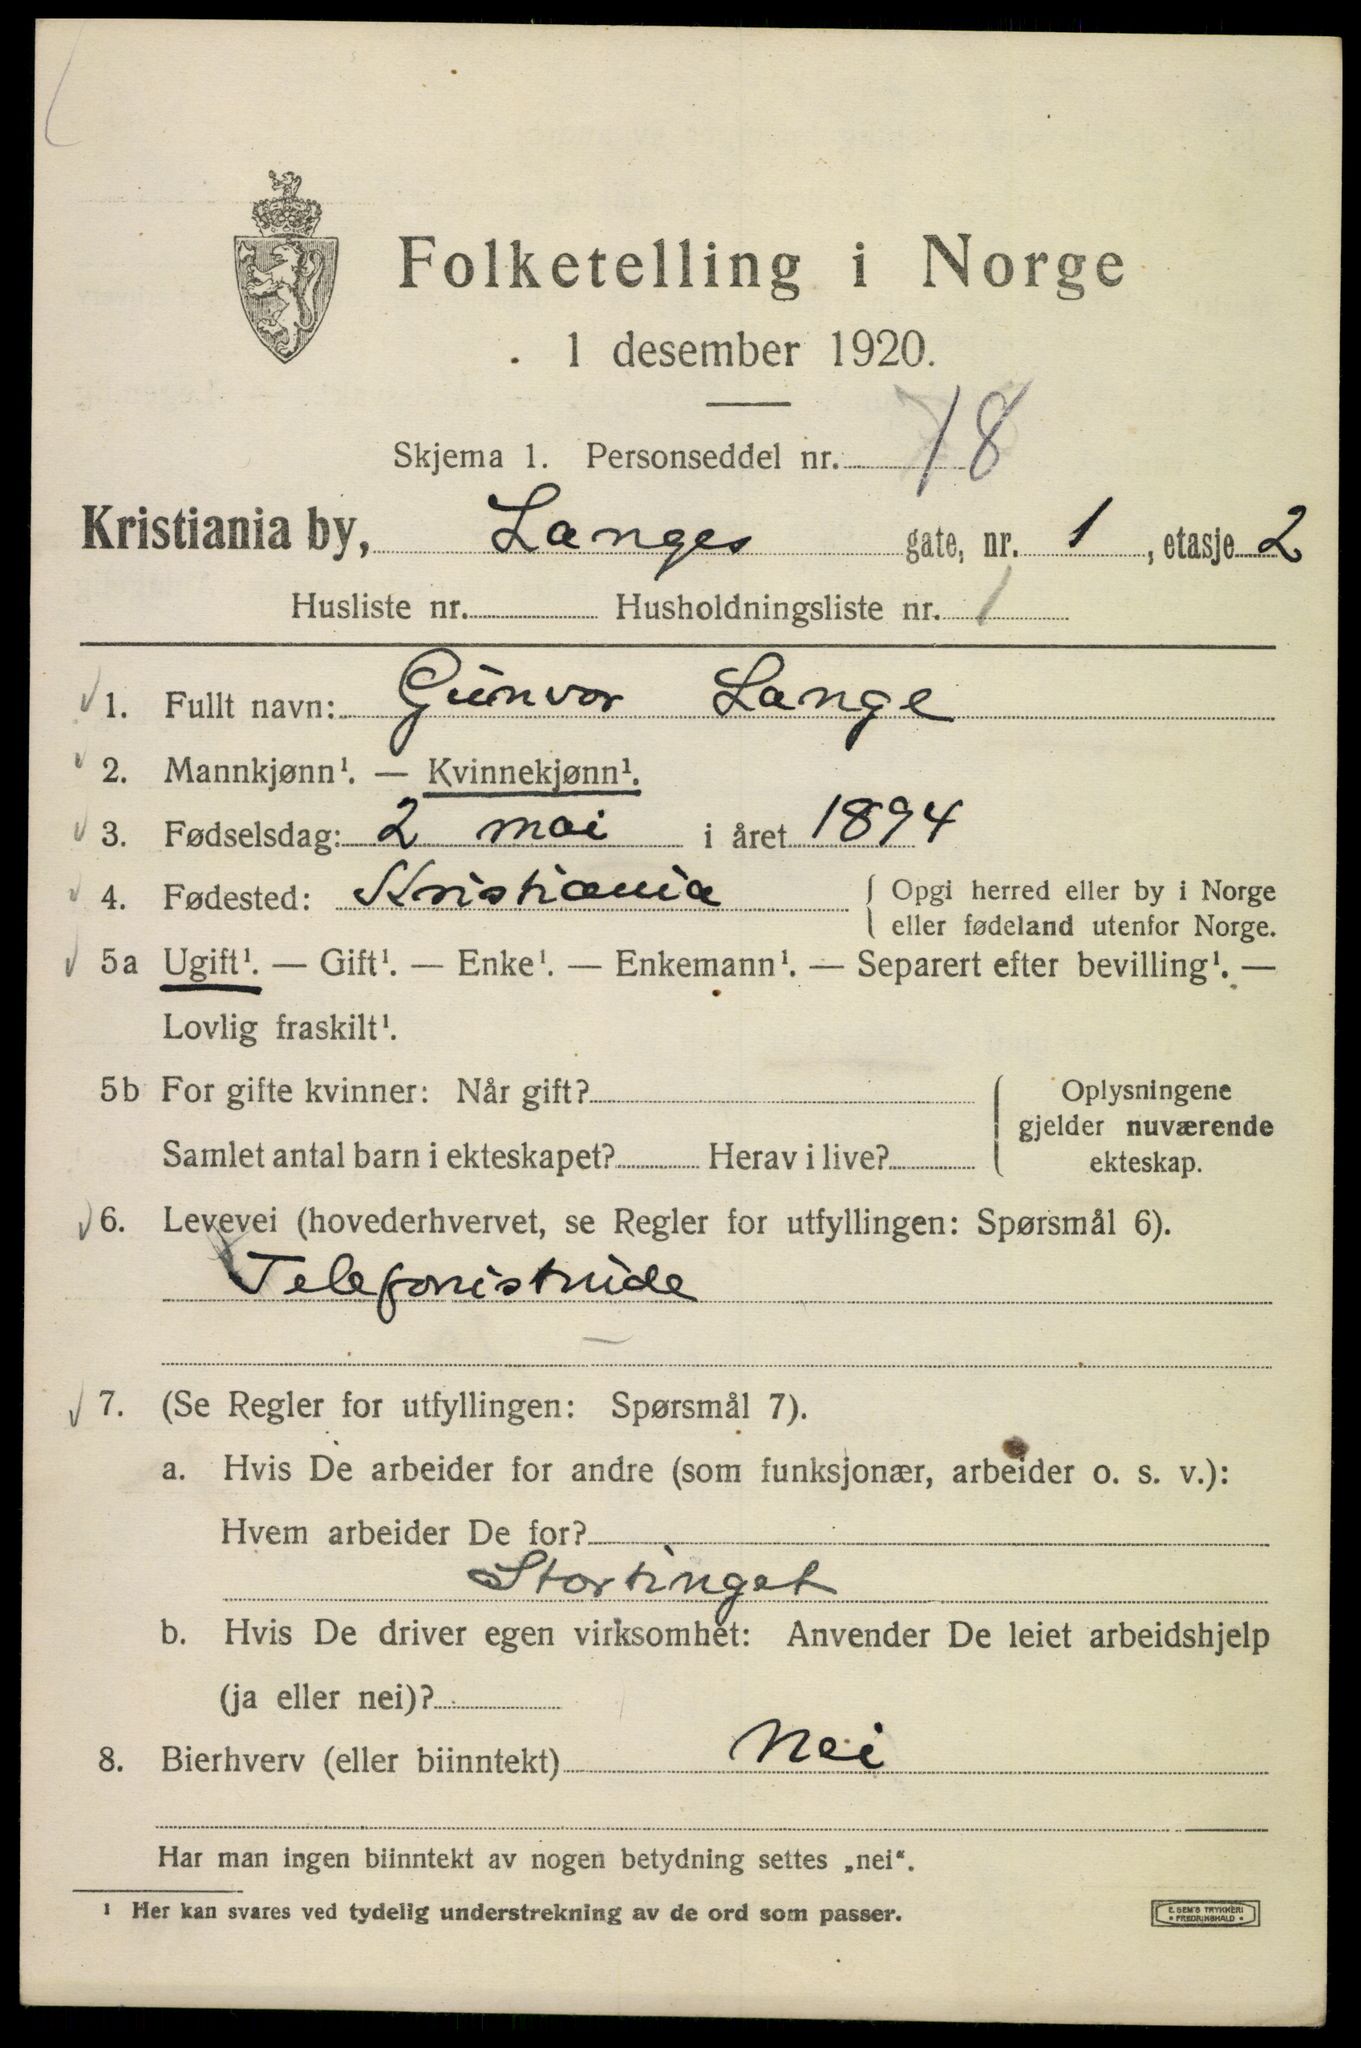 Folketelling i Norge
1 desember 1920.
Skjema 1. Personseddel nr. 18
Kristiania by, Langes gate, nr. 1, etasje 2
Husliste nr. Husholdningsliste nr. 1
1. Fullt navn: Gunvor Lange
2. Mannkjønn¹. — Kvinnekjønn¹.
3. Fødselsdag: 2 mai i året 1894
4. Fødested: Kristiania { Opgi herred eller by i Norge
eller fødeland utenfor Norge.
5a Ugift¹. — Gift¹. — Enke¹. — Enkemann¹. — Separert efter bevilling¹. —
Lovlig fraskilt¹.
5b For gifte kvinner: Når gift? { Oplysningene
gjelder nuværende
Samlet antal barn i ekteskapet? Herav i live? ekteskap.
6. Levevei (hovederhvervet, se Regler for utfyllingen: Spørsmål 6).
Telefonistinde
7. (Se Regler for utfyllingen: Spørsmål 7).
a. Hvis De arbeider for andre (som funksjonær, arbeider o. s. v.):
Hvem arbeider De for?
Stortinget
b. Hvis De driver egen virksomhet: Anvender De leiet arbeidshjelp
(ja eller nei)?
8. Bierhverv (eller biinntekt) Nei
Har man ingen biinntekt av nogen betydning settes „nei“.
¹ Her kan svares ved tydelig understrekning av de ord som passer.
E. SEM'S TRYKKERI
• FREDRIKSHALD •